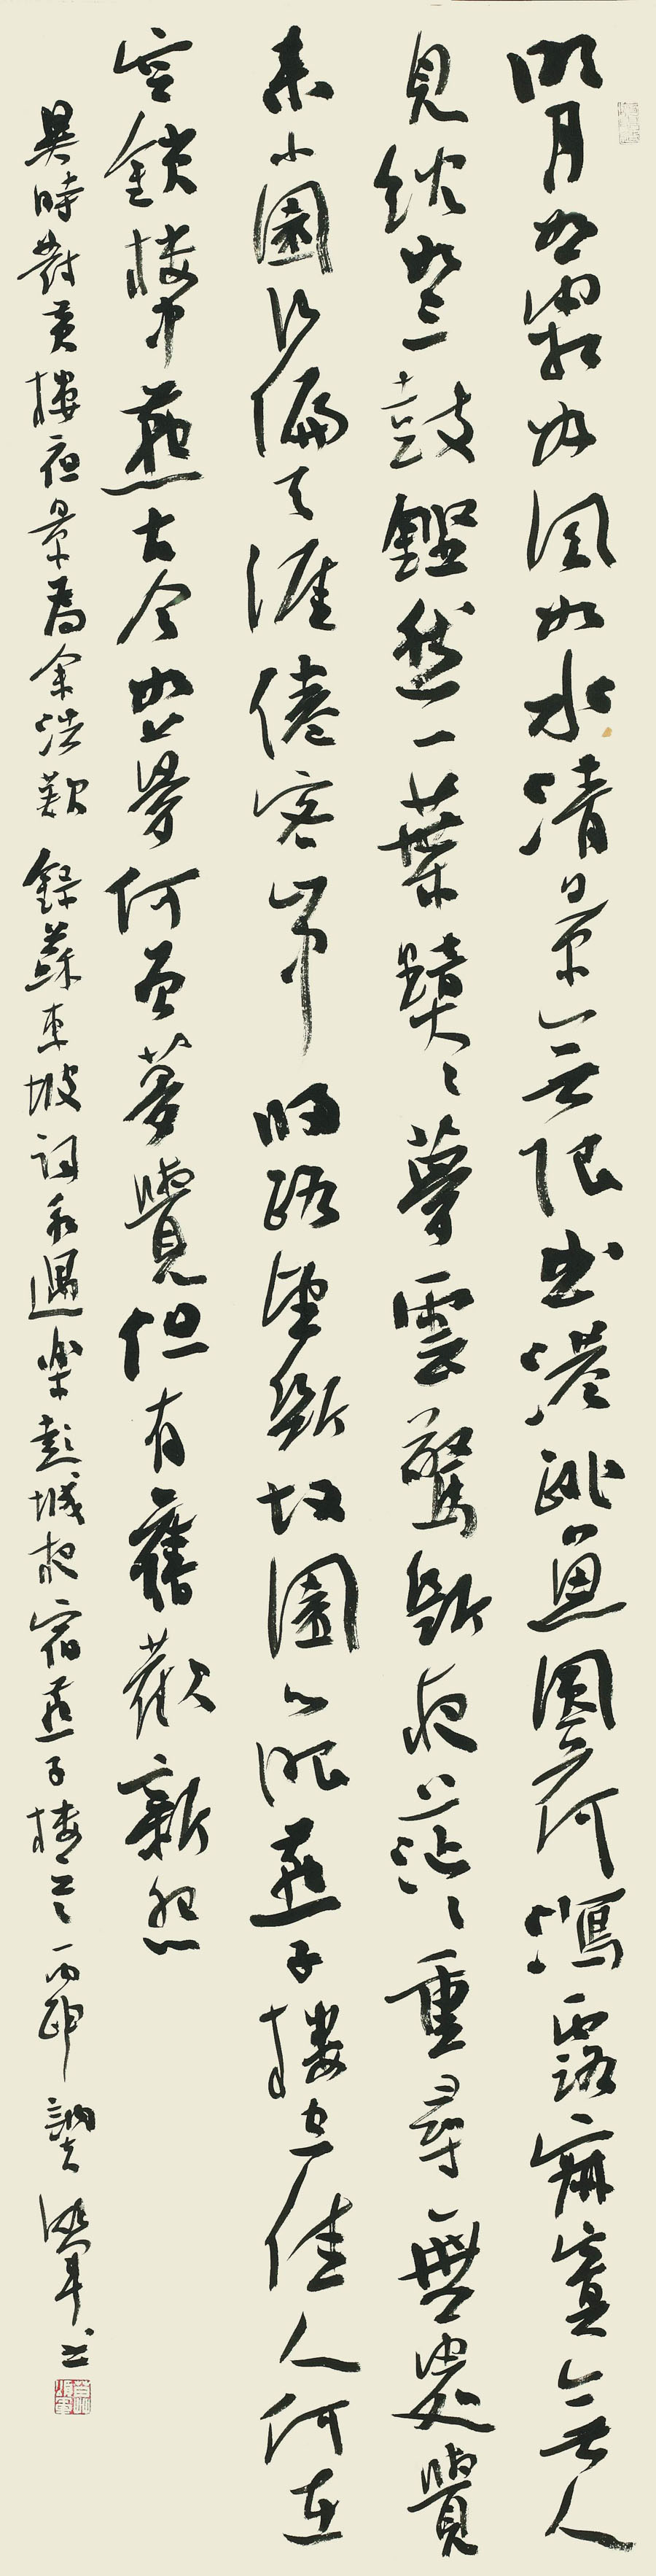 明月如霜好風如水清景無限曲港跳魚圓荷瀉露寂寞無人
見紞如三鼓鏗然一葉黯黯夢雲驚斷夜茫茫重尋無處覺
來小園行徧天涯倦客山中歸路望斷故園心眼燕子樓空佳人何在
空鎖樓中燕古今如夢何曾夢覺但有舊歡新怨
異時對黃樓夜景為余浩歎 錄蘇東坡詞永遇樂彭城夜宿燕子樓 丙申 書